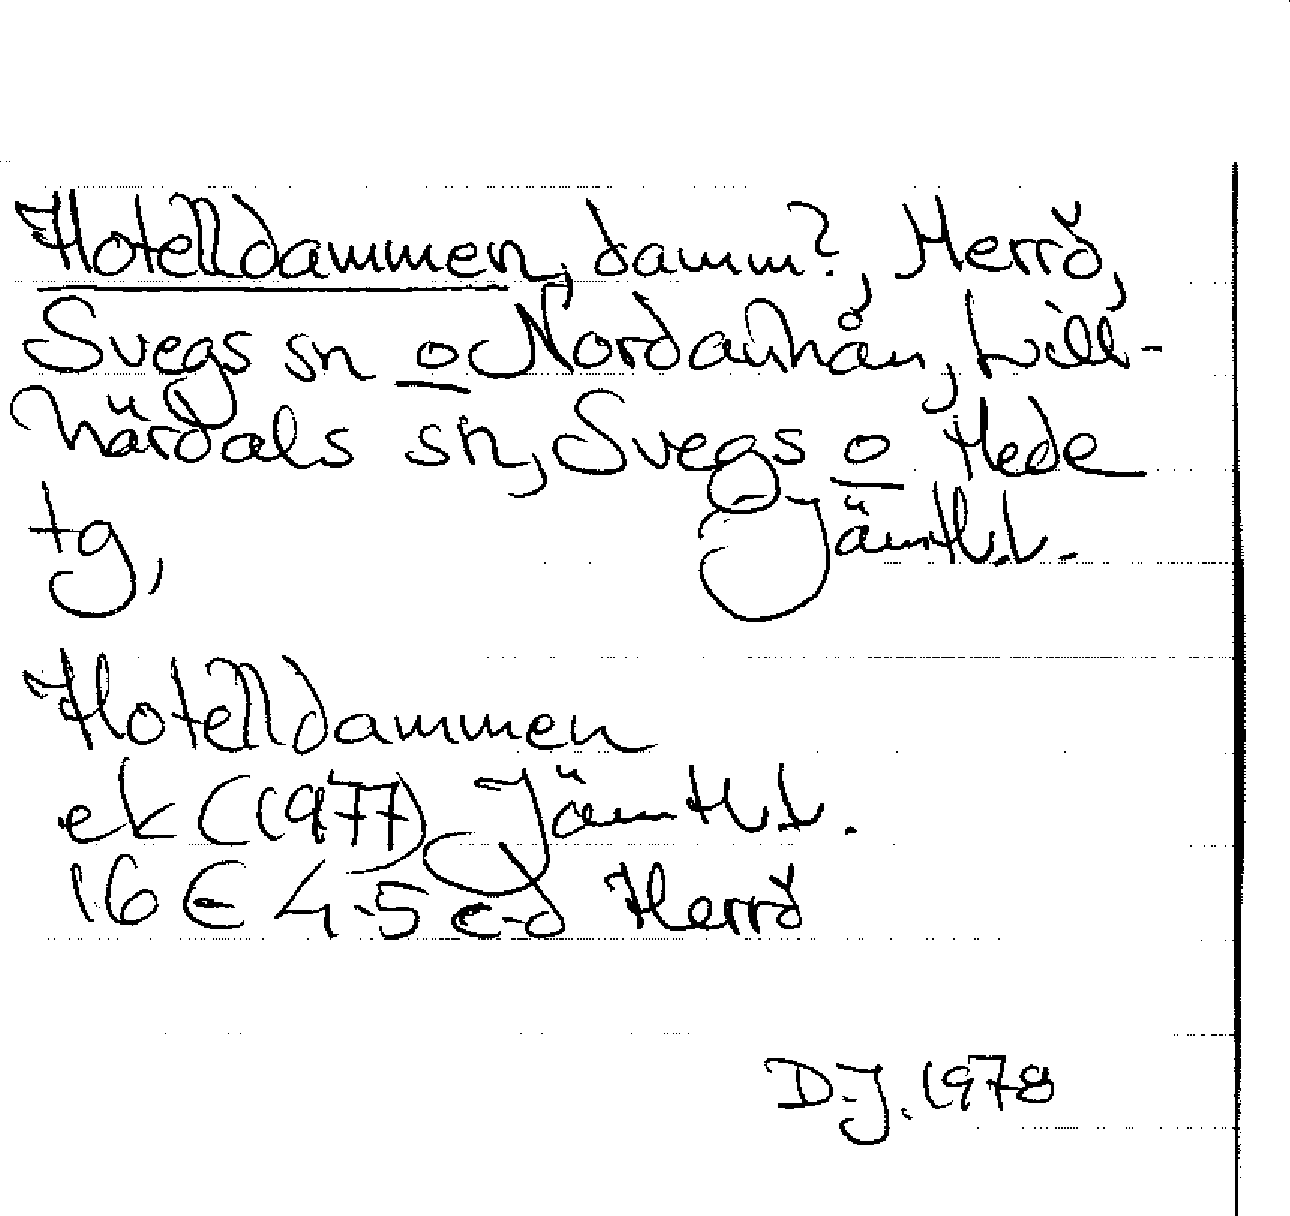 Hotelldammen, damm?, Herrö,
Svegs sn o Nordanhån, Lill-
härdals sn, Svegs o Hede
tg, Jämtl.l.
Hotelldammen
ek (1977) Jämtl.l.
16 E 4-5 c-d Herrö
D.J. 1978